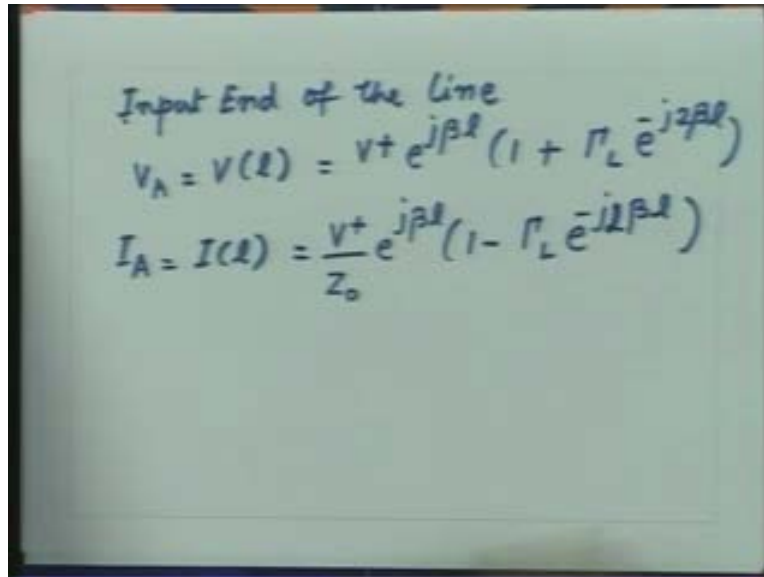 Input End of the line
V_A = V(l) = V⁺ e^{jβl} (1 + Γ_L e^{-j2βl})
I_A = I(l) = V⁺/Z₀ e^{jβl} (1 - Γ_L e^{-j2βl})